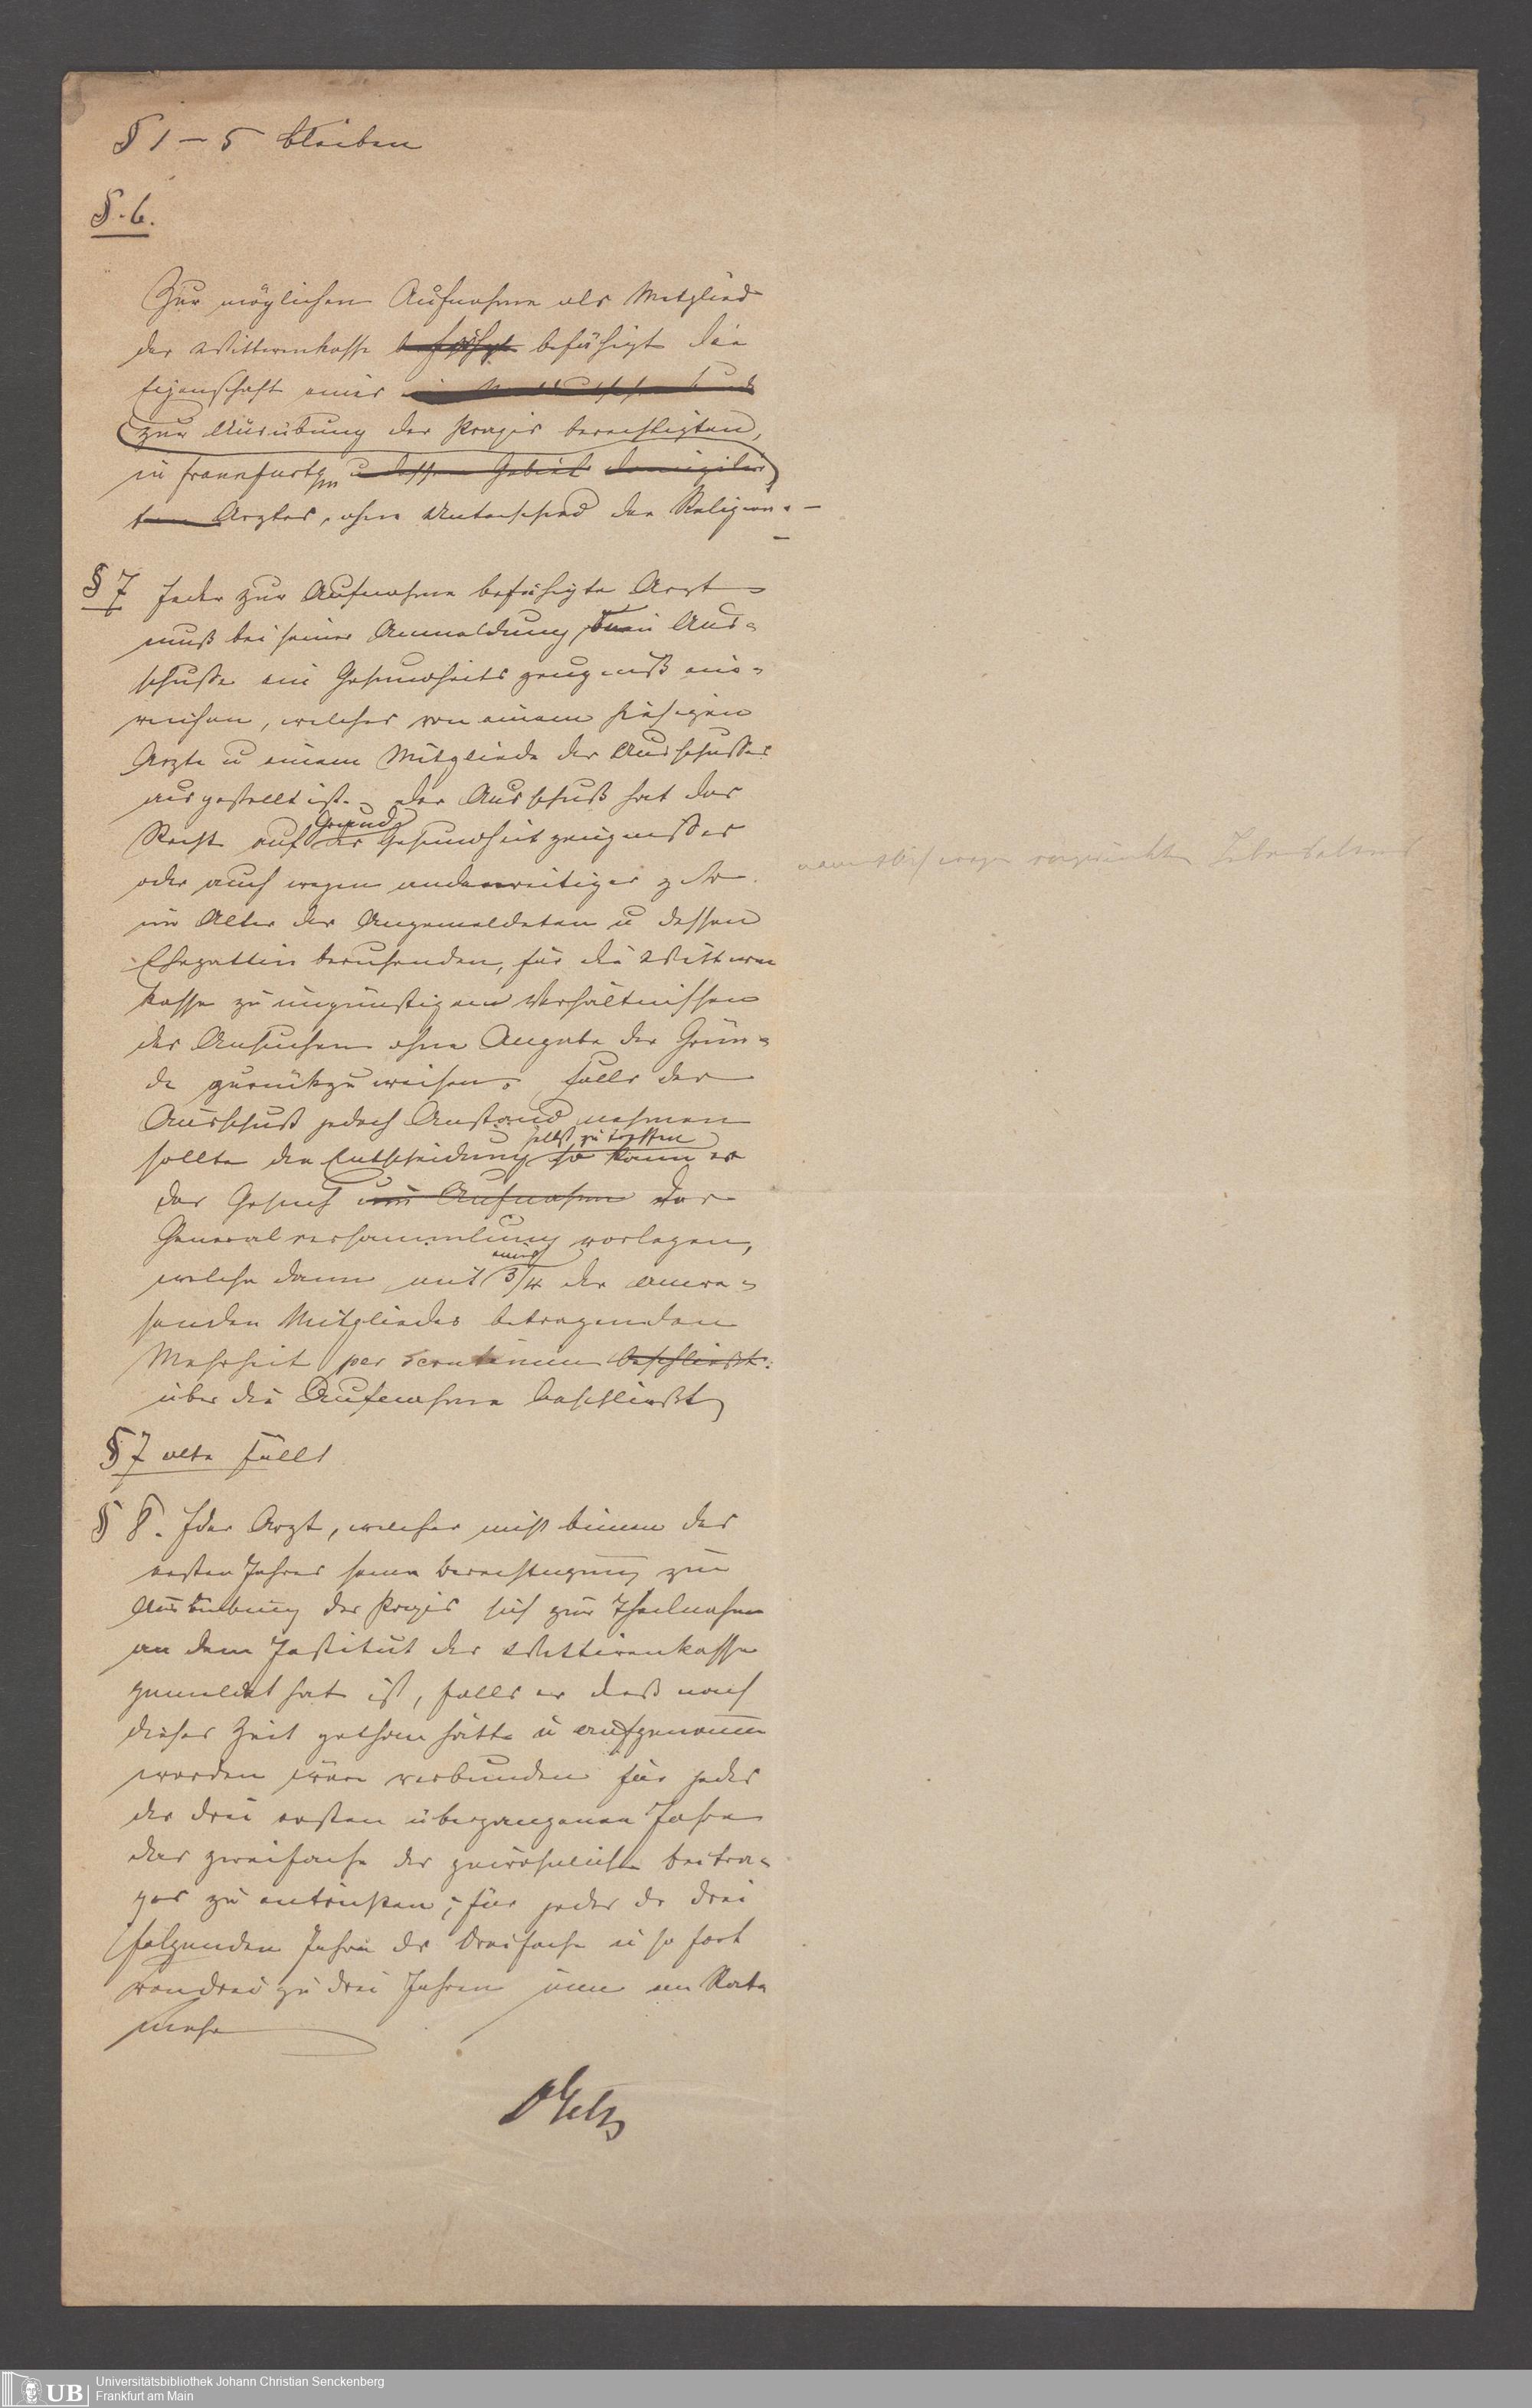 § 1 – 5 bleiben
§. 6.
Zur möglichen Aufnahme als Mitglied
der Wittwenkasse befähigt befähigt die
Eigenschaft eines
zur Ausübung der Praxis berechtigten,
in Frankfurt u dessen Gebiet domizilir
ten Arztes, ohne Unterschied der Religion. –
§ 7 Jeder zur Aufnahme befähigte Arzt
muß bei seiner Anmeldung beim Aus-
schusse ein Gesundheitszeugniß ein-
reichen, welches von einem hiesigen
Arzte u einem Mitgliede des Ausschusses
ausgestellt ist. – Der Ausschuß hat das
Grund
Recht auf des Gesundheitzeugnisses
oder auch wegen anderweitiger z. B.
im Alter des Angemeldeten u dessen
Ehegattin beruhenden, für die Wittwen
kasse zu ungünstigen Verhältnissen
namentlich wegen vorgerückten Lebensalters
das Ansuchen ohne Angabe der Grün-
de zurückzuweisen. Falls der
Ausschuß jedoch Anstand nehmen
selbst zu treffen
sollte die Entscheidung so kann er
das Gesuch um Aufnahme der
Generalversammlung vorlegen,
einer
welche dann mit 3/4 der anwe-
senden Mitglieder betragenden
Mehrheit per scrutinium beschließt.
über die Aufnahme beschließt
§ 7 alte fällt
§ 8. Jder Arzt, welcher nicht binnen des
ersten Jahres seiner Berechtigung zur
Ausübung der Praxis sich zur Theilnahme
an dem Institut der Wittwenkasse
gemeldet hat ist, falls er dieß nach
dieser Zeit gethan hätte u aufgenommen
worden wäre verbunden für jedes
der drei ersten übergangenen Jahre
das zweifache des gewöhnlichen Beitra-
ges zu entrichten; für jedes der drei
folgenden Jahre das dreifache u so fort
von drei zu drei Jahren immer eine Rate
mehr
Universitätsbibliothek Johann Christian Senckenberg
Frankfurt am Main
UB